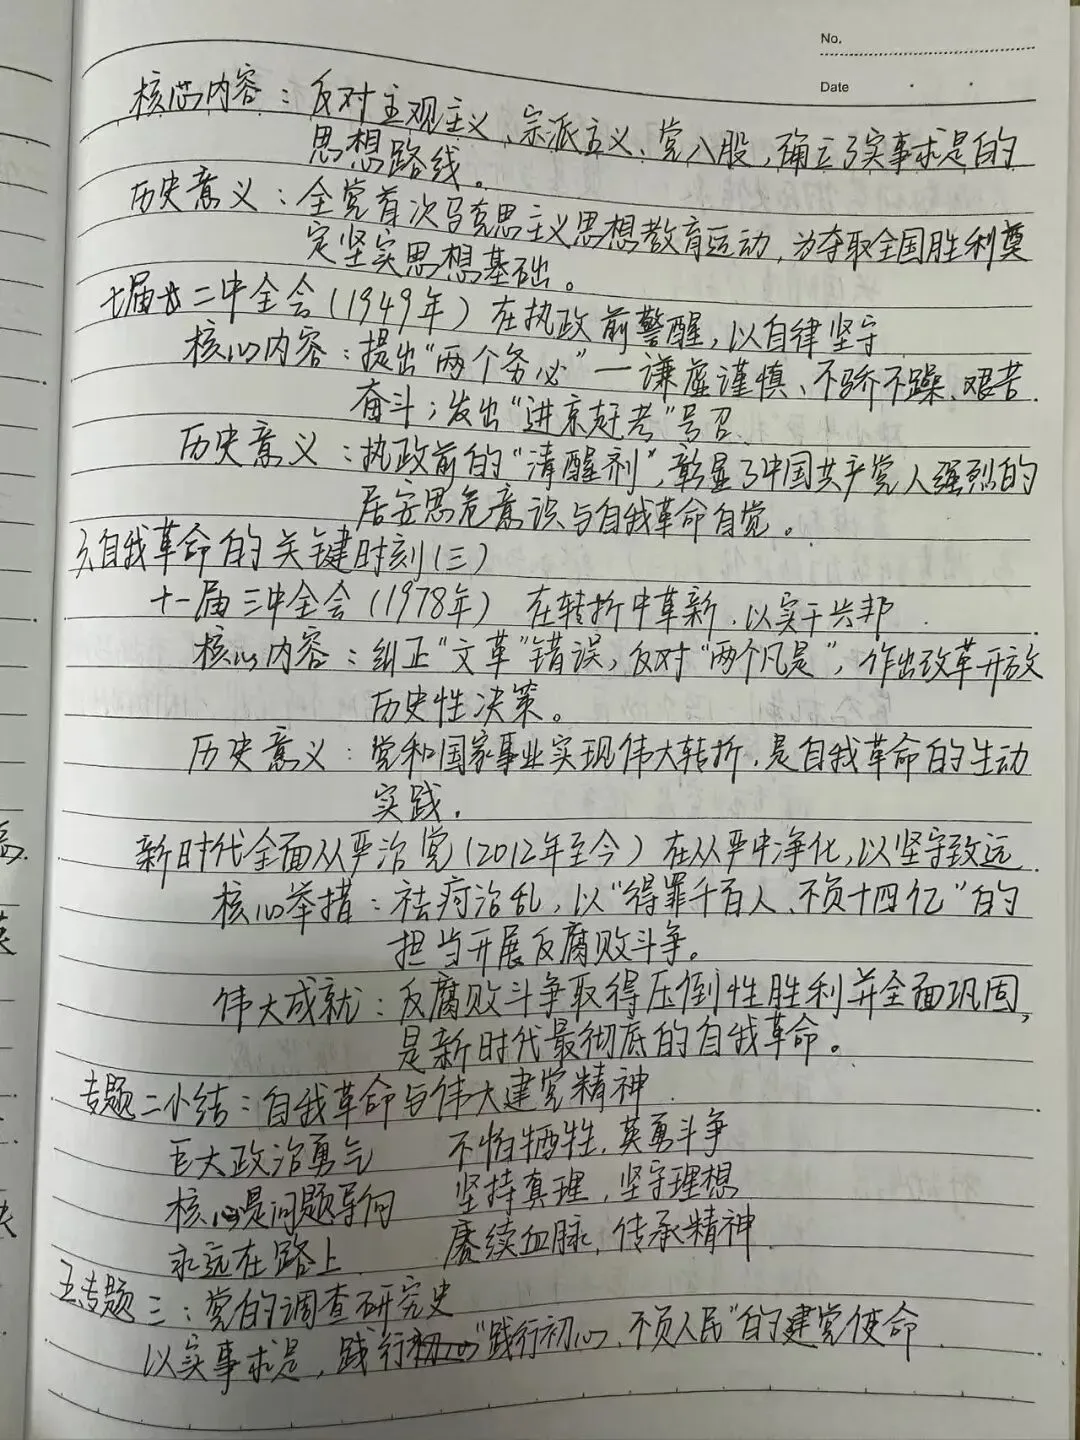 No.
Date
核心内容：反对主观主义、宗派主义、党八股，确立了实事求是的
思想路线。
历史意义：全党首次马克思主义思想教育运动，为夺取全国胜利奠
定坚实思想基础。
七届二中全会（1949年）在执政前警醒，以自律坚守
核心内容：提出“两个务必”—谦虚谨慎、不骄不躁、艰苦
奋斗；发出“进京赶考”号召
历史意义：执政前的“清醒剂”，彰显了中国共产党人强烈的
居安思危意识与自我革命自觉。
3、自我革命的关键时刻（三）
十一届三中全会（1978年）在转折中革新，以实干兴邦
核心内容：纠正“文革”错误，反对“两个凡是”，作出改革开放
历史性决策。
历史意义：党和国家事业实现伟大转折，是自我革命的生动
实践。
新时代全面从严治党（2012年至今）在从严中净化，以坚守致远
核心举措：祛疴治乱，以“得罪千百人、不负十四亿”的
担当开展反腐败斗争。
伟大成就：反腐败斗争取得压倒性胜利并全面巩固，
是新时代最彻底的自我革命。
专题二小结：自我革命与伟大建党精神
巨大政治勇气 不怕牺牲，英勇斗争
核心是问题导向 坚持真理，坚守理想
永远在路上 赓续血脉，传承精神
五、专题三：党的调查研究史
以实事求是，践行初心“践行初心、不负人民”的建党使命